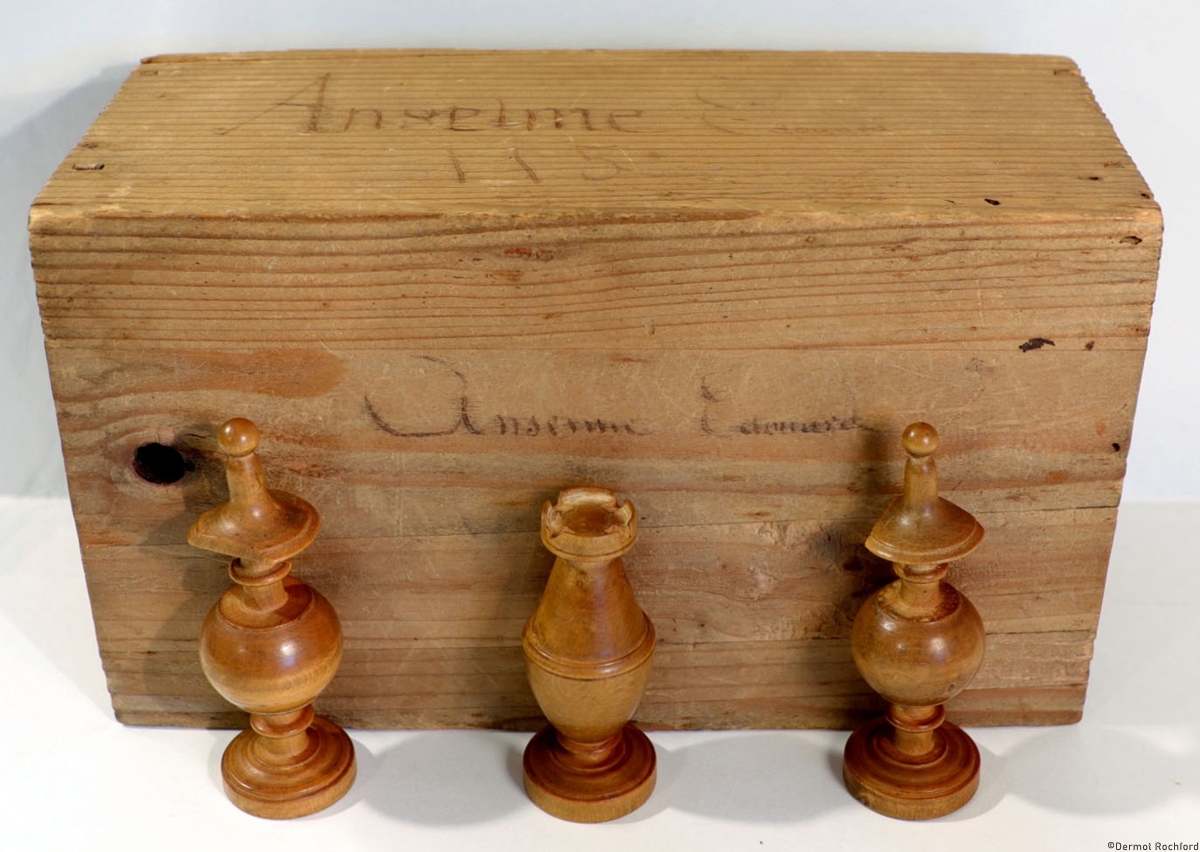 Anselme
115
Anselme Edouard
©Dermot Rochford